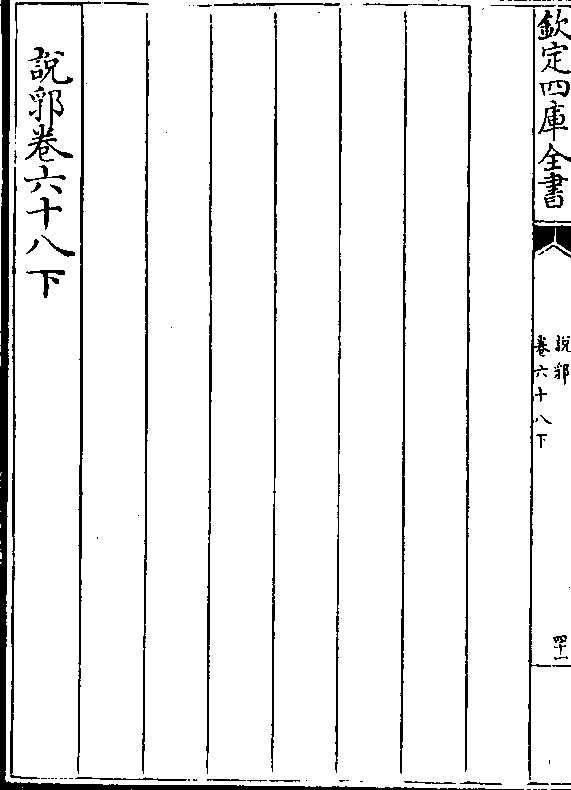 欽定四庫全書
說郛
卷六十八下
四十一
說郛卷六十八下